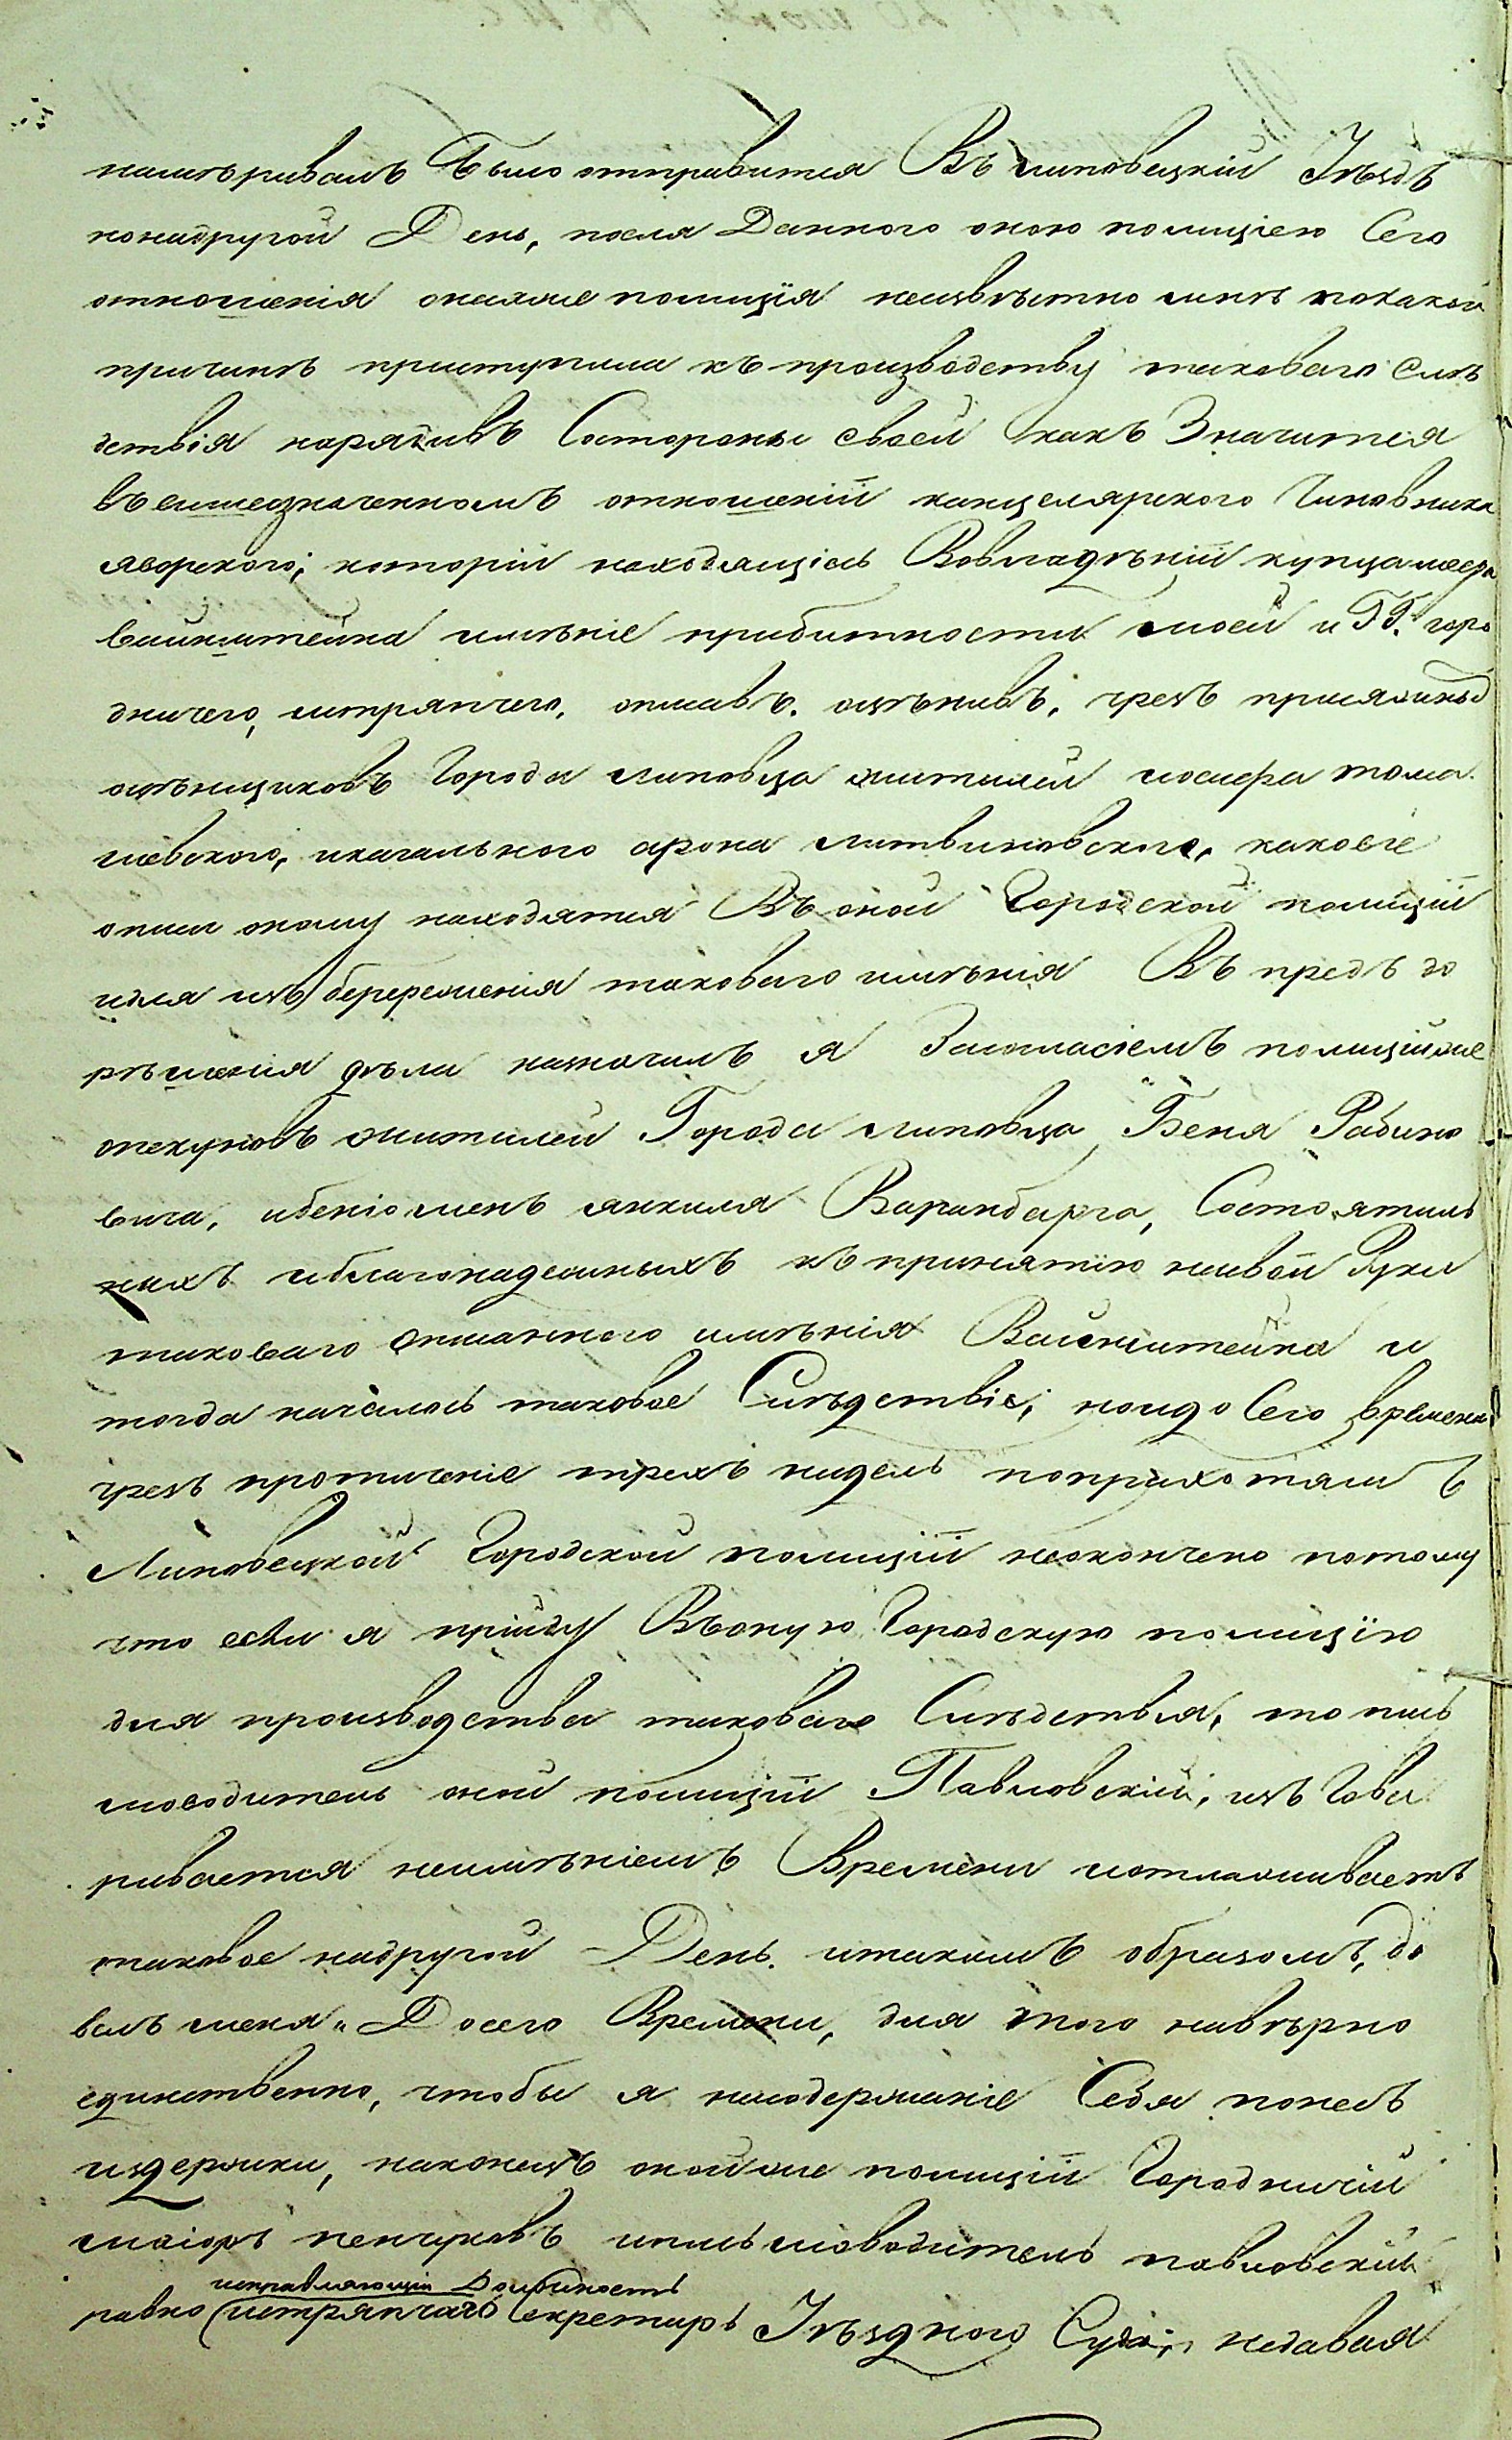 намѣривалъ было отправится Въ липовецкій Уѣздъ
нонадругой День, после Данного оною полиціею Сего
отношенія онаяже полиція неизвѣстно мнѣ покакой
причинѣ приступила къ производству таковаго Слѣ
дствія нарядивъ Состороны своей какъ Значится
въвишеозначенномъ отношеніи канцелярского Чиновника
яворского; которій находящіесь Вовладѣніи купца меера
вайнштейна имѣніе прибитности моей и ГГ. горо
дничего, истряпчего, описавъ. оцѣнивъ, чрезъ присяжныхъ
оцѣнщиковъ Города липовца жителей иосифа тома
шевского, икагального арона литвиновского, каковіе
описи оному находятся Въ оной Городской полиціи
идля изъ береженія таковаго имѣнія Въ предъ до
рѣшенія дѣла назначилъ я Засогласіемъ полиціиже
опекуновъ жителей Города липовца Беня Рабино
вича, ибеніоменъ янкеля Варинберга, Состоятель
ныхъ иблагонадежныхъ къ принятію насвои Руки
таковаго описанного имѣнія Вайнштейна и
тогда началось таковое Слѣдствіе; ноидо Сего времени
чрезъ протиченіе трехъ нидель поприхотямъ
Липовецкой Городской полиціи неокончено потому
что если я прійду Въоную Городскую полицію
для производства таковаго Слѣдствія, то пись
моводитель оной полиціи Павловскій, изъ Гова
ривается неимѣніемъ Времени иотлаживаетъ
таковое надругой День. итакимъ образомъ, до
велъ меня Досего Времени, для того навѣрно
единственно, чтобы я насодержаніе Себя понесъ
издержки, наконецъ онойже полиціи Городничій
маіоръ пенчуковъ иписьмоводитель павловскій
исправляющій Должность
равно истряпчаго Секретарь Уѣздного Суда, недавая